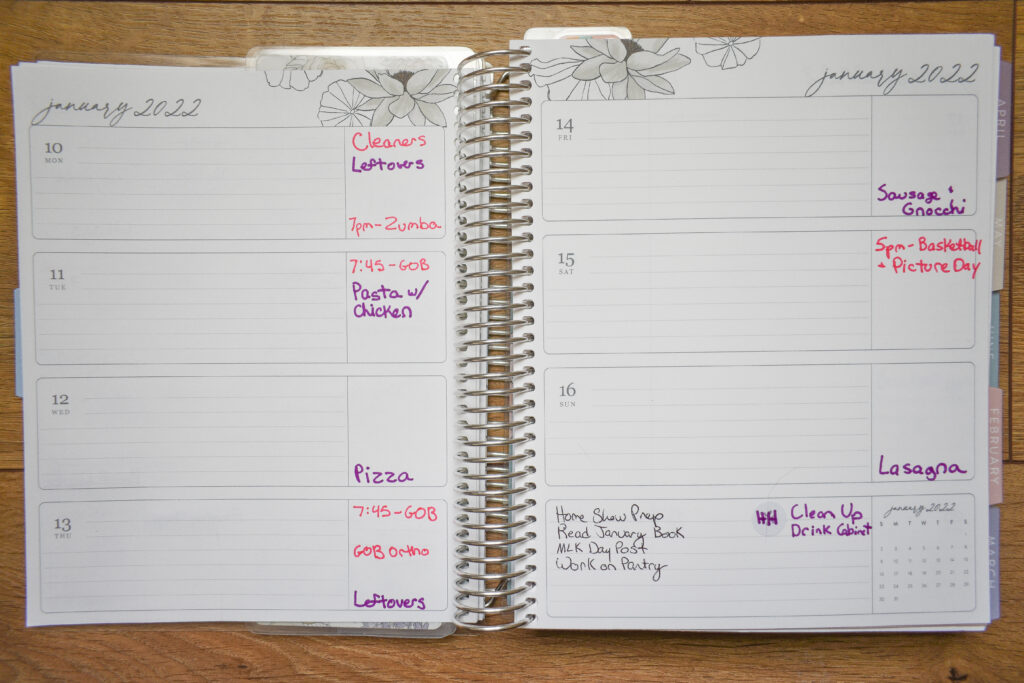 january 2022
10
MON
Cleaners
Leftovers
7pm-Zumba
11
TUE
7:45-GOB
Pasta w/
Chicken
12
WED
Pizza
13
THU
7:45-GOB
GOB Ortho
Leftovers
january 2022
14
FRI
Sausage +
Gnocchi
15
SAT
5pm-Basketball
+ Picture Day
16
SUN
Lasagna
Home Show Prep
Read January Book
MLK Day Post
Work on Pantry
HH
Clean Up
Drink Cabinet
january 2022
S M T W T F S
1
2 3 4 5 6 7 8
9 10 11 12 13 14 15
16 17 18 19 20 21 22
23 24 25 26 27 28 29
30 31
APRIL
MAY
FEBRUARY
MARCH